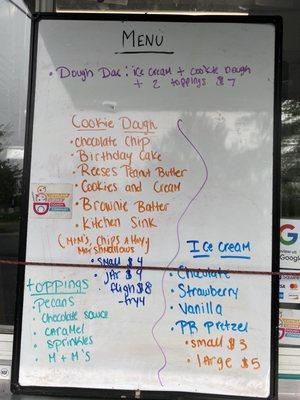 MENU
• Dough Dac: ice cream + cookie dough
+ 2 toppings $7
Cookie Dough
• chocolate chip
• Birthday Cake
• Reeses Peanut Butter
• Cookies and Cream
• Brownie Batter
• Kitchen Sink
(M+M'S, chips Ahoy,
Marshmallows
• small $4
• jar $9
• fligh $8
- fry 4
toppings
• Pecans
• chocolate sauce
• caramel
• sprinkles
• M + M's
Ice cream
• Chocolate
• Strawberry
• Vanilla
• PB Pretzel
• small $3
• large $5
Google
VISA